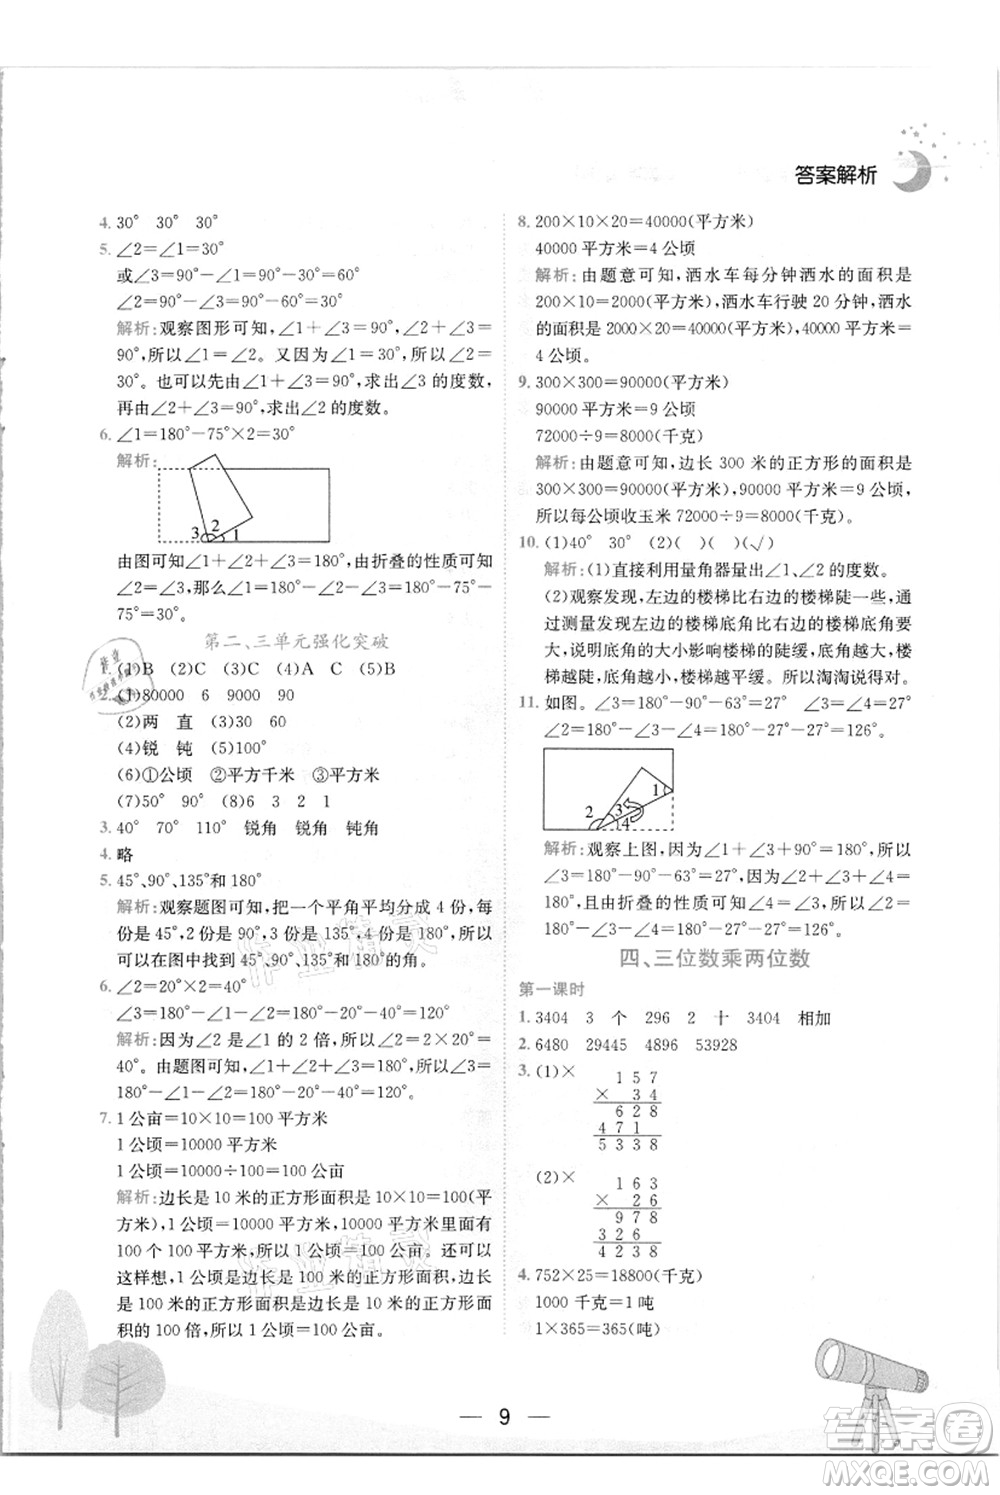 答案解析
4. 30° 30° 30°
5. ∠2=∠1=30°
或∠3=90°-∠1=90°-30°=60°
∠2=90°-∠3=90°-60°=30°
解析:观察图形可知,∠1+∠3=90°,∠2+∠3=
90°,所以∠1=∠2。又因为∠1=30°,所以∠2=
30°。也可以先由∠1+∠3=90°,求出∠3的度数,
再由∠2+∠3=90°,求出∠2的度数。
6. ∠1=180°-75°×2=30°
解析:
3 2 1
由图可知∠1+∠2+∠3=180°,由折叠的性质可知
∠2=∠3,那么∠1=180°-∠2-∠3=180°-75°-
75°=30°。
第二、三单元强化突破
1. (1)B (2)C (3)C (4)B (5)B
2. (1)80000 6 9000 90
(2)两 直 (3)30 60
(4)锐 钝 (5)100°
(6)①公顷 ②平方千米 ③平方千米
(7)50° 90° (8)6 3 2 1
3. 40° 70° 110° 锐角 锐角 钝角
4. 略
5. 45°、90°、135°和180°
解析:观察题图可知,把一个平角平均分成4份,每
份是45°,两份是90°,三份是135°,四份是180°,所以
可以在图中找到45°、90°、135°、180°的角。
6. ∠2=20°×2=40°
∠3=180°-∠1-∠2=180°-20°-40°=120°
解析:因为∠2是∠1的2倍,所以∠2=20°×2=
40°。由题图可知,∠1+∠2+∠3=180°,所以∠3=
180°-∠1-∠2=180°-20°-40°=120°。
7. 1公亩=10×10=100平方米
1公顷=10000平方米
1公顷=10000÷100=100公亩
解析:边长是10米的正方形面积是10×10=100(平
方米),1公顷=10000平方米,10000平方米里面有
100个100平方米,所以1公顷=100公亩。还可以
这样想,1公顷是边长是100米的正方形的面积,边
长是100米的正方形面积是边长是10米的正方形面
积的100倍,所以1公顷=100公亩。
8. 200×10×20=40000(平方米)
40000平方米=4公顷
解析:由题意可知,洒水车每分钟洒水的面积是
200×10=2000(平方米),洒水车行驶20分钟,洒水
的面积是2000×20=40000(平方米),40000平方米=
4公顷。
9. 300×300=90000(平方米)
90000平方米=9公顷
72000÷9=8000(千克)
解析:由题意可知,边长300米的正方形的面积是
300×300=90000(平方米),90000平方米=9公顷,
所以每公顷收玉米72000÷9=8000(千克)。
10. (1)40° 30° (2)( )( )(√)
解析:(1)直接利用量角器量出∠1、∠2的度数。
(2)观察发现,左边的楼梯比右边的楼梯陡一些,通
过测量发现左边的楼梯底角比右边的楼梯底角要
大,说明底角的大小影响楼梯的陡缓,底角越大,楼
梯越陡,底角越小,楼梯越平缓。所以淘淘说得对。
11. 如图。∠3=180°-90°-63°=27° ∠3=∠4=27°
∠2=180°-∠3-∠4=180°-27°-27°=126°
1 2 3 4
解析:观察上图,因为∠1+∠3+90°=180°,所以
∠3=180°-90°-63°=27°。因为∠2+∠3+∠4=
180°,且由折叠的性质可知∠3=∠4=27°,所以∠2=
180°-∠3-∠4=180°-27°-27°=126°。
四、三位数乘两位数
第一课时
1. 3404 3 个 296 2 十 3404 相加
2. 6480 29445 4896 53928
3. (1)× 1 5 7
× 3 4
6 2 8
4 7 1
5 3 3 8
(2)× 1 6 3
× 2 6
9 7 8
3 2 6
4 2 3 8
4. 752×25=18800(千克)
1000千克=1吨
1×365=365(吨)
— 9 —
作业精灵
作业精灵
答案卷
MXQE.COM